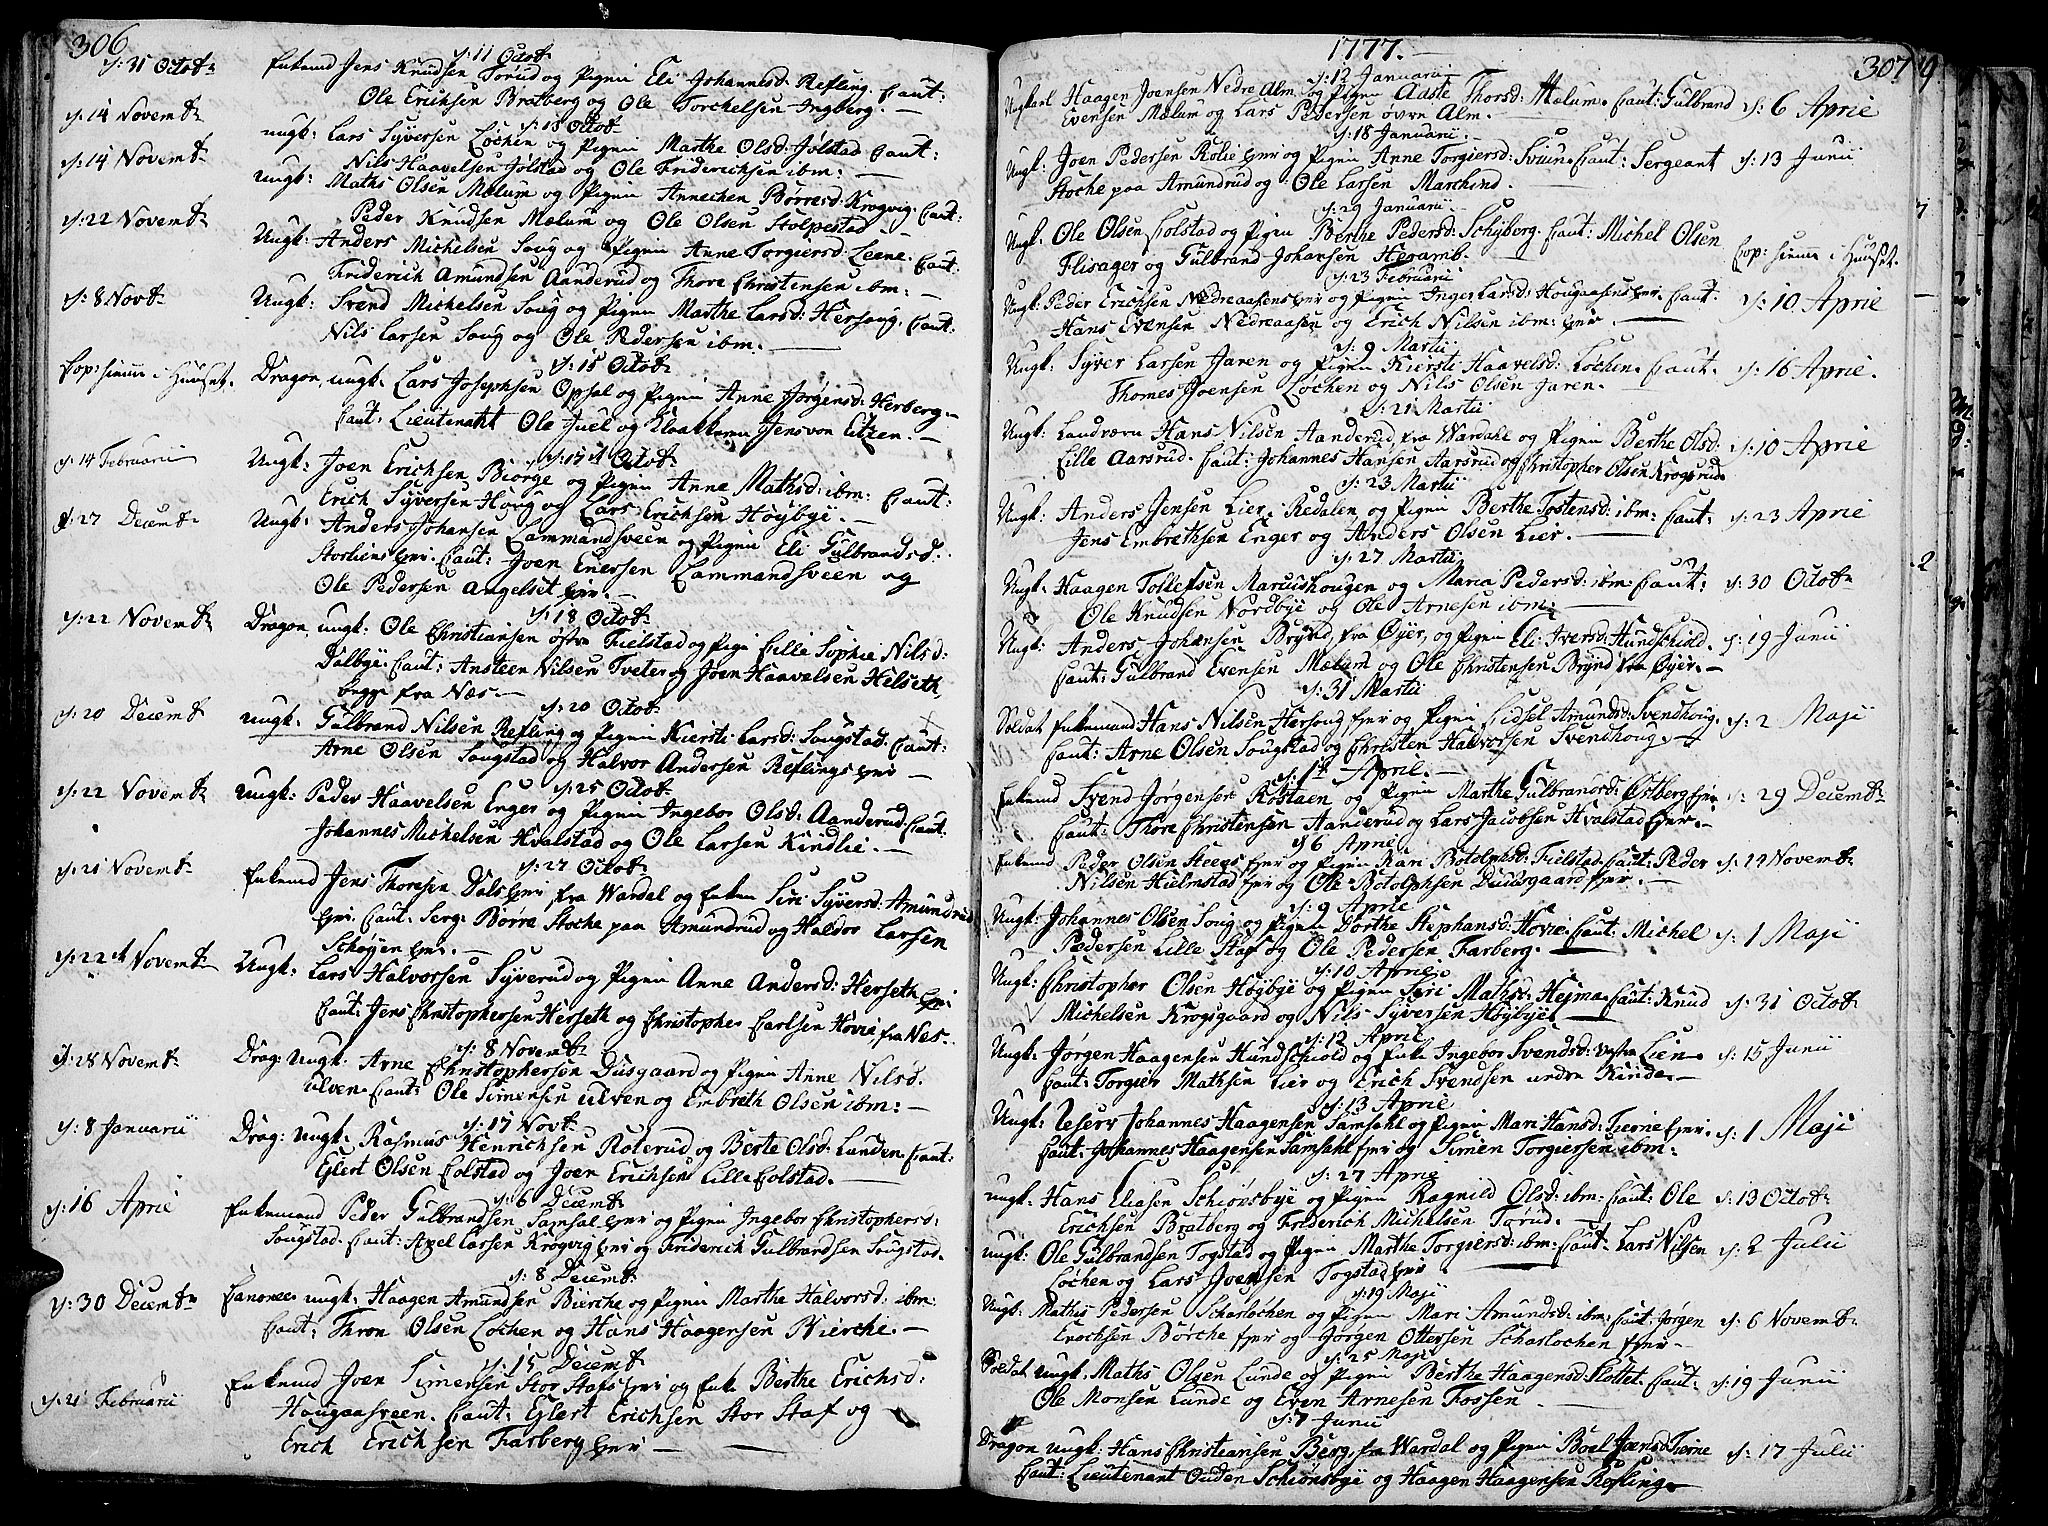 306
d: 11 Octob:
d: 31 Octobr
Enkemd Jens Knudsen Torud og Pigen Eli Johannesd: Refling. Caut:
Ole Erichsen Bratberg og Ole Torchelsen Ingberg. —
d: 14 Novembr
d: 18 Octob
ungk: Lars Syversen Løchen og Pigen Marthe Olsd: Jølstad. Caut:
Nils Haavelsen Jølstad og Ole Friderichsen ibm: —
d: 14 Novembr
ungk: Maths Olsen Mælum og Pigen Annechen Børresd: Krogvig. Caut:
Peder Knudsen Mælum og Ole Olsen Stolpestad —
d: 22 Novembr
Ungk: Anders Michelsen Soug og Pigen Anne Torgiersd: Leene. Caut:
Friderich Amundsen Aanderud og Thore Christensen ibm: —
d: 8 Novbr
Ungk: Svend Michelsen Soug og Pigen Marthe Larsd: Hersoug. Caut:
Nils Larsen Soug og Ole Pedersen ibm. —
d: 15 Octob:
Cop: hiemme i Huuset.
Dragon, ungk. Lars Josephsen Opsal og Pigen Anne Jørgensd: Herberg. —
Caut: Lieutenant Ole Juel og Klokkeren Jens von Eitzen. —
d: 17 Octob:
d: 14 Februarii
Ungk: Joen Erichsen Biørge og Pigen Anne Mathsd: ibm: Caut:
Erich Syversen Houg og Lars Erichsen Høybye. —
d: 27 Decembr
Ungk: Anders Johansen Lammandsveen og Pigen Eli Gulbrandsd:
Storlien eyer. Caut: Joen Enersen Lammandsveen og
Ole Pedersen Angelset eyer. —
d: 18 Octob:
d: 22 Novembr
Dragon, ungk: Ole Christiansen østre Fielstad og Pige Lille Sophie Nilsd:
Dalbye. Caut: Ansteen Nilsen Tveter og Joen Haavelsen Hilseth,
begge fra Næs. —
d: 20 Octob:
d: 20 Decembr
ungk. Gulbrand Nilsen Refling og Pigen Kiersti Larsd: Sougstad. Caut:
Arne Olsen Sougstad og Halvor Andersen Reflings eyer —
d: 25 Octob:
d: 22 Novembr
ungk: Peder Haavelsen Enger og Pigen Ingebor Olsd: Aanderud. Caut.
Johannes Michelsen Hvalstad og Ole Larsen Kindlie. —
d: 27 Octob:
d: 21 Novembr
Enkemd Jens Thoresen Dals eyer fra Wardal og Enken Siri Syversd: Amundrud
eyer. Caut: Serg: Børre Stoche paa Amundrud og Haldor Larsen
Schøyen eyer. —
d: 22 Novembr
Ungk. Lars Halvorsen Syverud og Pigen Anne Andersd: Herseth eyer.
Caut: Jens Christophersen Herseth og Christopher Carlsen Hovie, fra Næs. —
d: 8 Novembr
d: 28 Novembr
Drag: Ungk. Arne Christophersen Dusgaard og Pigen Anne Nilsd.
Ulven. Caut: Ole Simensen Ulven og Embreth Olsen ibm: —
d: 17 Novbr
d: 8 Januarii
Drag: Ungk. Rasmus Henrichsen Roterud og Berte Olsd: Lunden. Caut:
Eglert Olsen Colstad og Joen Erichsen Lille Colstad. —
d: 6 Decembr
d: 16 April
Enkemand Peder Gulbrandsen Samsal eyer og Pigen Ingebor Christophersd:
Sougstad. Caut: Axel Larsen Krogvig eyer og Friderich Gulbrandsen Sougstad.
d: 8 Decembr
d: 30 Decembr
Canoneer ungk. Haagen Amundsen Bierche og Pigen Marthe Halvorsd: ibm:
Caut: Thron Olsen Løchen og Hans Haagensen Bierche. —
d: 15 Decembr
d: 21 Februarii
Enkemd Joen Simensen Stor Stafs eyer og Enke Berthe Erichsd:
Hougaasveen. Caut: Eglert Erichsen Stor Staf og
Erich Erichsen Farberg eyer —
1777. —
307
d: 12 Januarii
Ungkarl Haagen Joensen Nedre Alm og Pigen Aaste Thorsd: Mælum. Caut: Gulbrand d: 6 April
Evensen Mælum og Lars Pedersen øvre Alm. —
d: 18 Januarii. —
Ungk: Joen Pedersen Rolie eyer og Pigen Anne Torgiersd: Sviun. Caut: Sergeant d: 13 Junii
Stoche paa Amundrud og Ole Larsen Marchend. —
d: 29 Januarii
Ungk. Ole Olsen Colstad og Pigen Berthe Pedersd: Schyberg. Caut: Michel Olsen
Flisager og Gulbrand Johansen Heramb. Cop: hiemme i Huuset.
d: 23 Februarii
Ungk: Peder Erichsen Nedreaasens eyer og Pigen Inger Larsd: Hougaasens eyer. Caut: d: 10 April
Hans Evensen Nedreaasen og Erich Nilsen ibm: eyer. —
d: 9 Martii
Ungk: Syver Larsen Jaren og Pigen Kiersti Haavelsd: Løchen. Caut. d: 16 April.
Thomes Joensen Løchen og Nils Olsen Jaren. —
d: 21 Martii
Ungk: Landværn Hans Nilsen Aanderud fra Wardahl og Pigen Berthe Olsd: d: 10 April
Lille Aarsrud. Caut: Johannes Hansen Aarsrud og Christopher Olsen Krogsrud.
d: 23 Martii
Ungk: Anders Jensen Lier i Redalen og Pigen Berthe Tostensd: ibm: Caut: d: 23 April
Jens Embrethsen Enger og Anders Olsen Lier. —
d: 27 Martii
Ungk: Haagen Tollefsen Marcushougen og Maria Pedersd: ibm: Caut: d: 30 Octobr
Ole Knudsen Nordbye og Ole Arnesen ibm: —
Ungk: Anders Johansen Brynd, fra Øyer, og Pigen Eli Iversd: Hundschiold. d: 19 Junii
Caut: Gulbrand Evensen Mælum og Ole Christensen Brynd fra Øyer. —
d: 31 Martii
Soldat Enkemand Hans Nilsen Hersoug eyer og Pigen Lidsel Amundsd: Svendhoug. d: 2 Maji
Caut: Arne Olsen Sougstad og Christen Halvorsen Svendhoug. —
d: 1 April. —
Enkemd Svend Jørgensen Robstaen og Pigen Marthe Gulbrandsd: Østberg eyer d: 29 Decembr
Caut: Thore Christensen Aanderud og Lars Jacobsen Hvalstad eyer. —
d: 6 April
Enkemd Peder Olsen Steegs eyer og Pigen Kari Botolphsd: Fielstad. Caut: Peder d: 14 Novembr
Nilsen Hielmstad eyer og Ole Botolphsen Duusgaard eyer. —
d: 9 April
Ungk: Johannes Olsen Soug og Pigen Dorthe Stephansd: Hovie. Caut: Michel d: 1 Maji
Pedersen Lille Staf og Ole Pedersen Farberg. —
d: 10 April
Ungk: Christopher Olsen Høybye og Pigen Siri Mathsd: Hejma. Caut: Knud d: 31 Octobr
Michelsen Krogsgaard og Nils Syversen Høybye. —
d: 12 April
Ungk: Jørgen Haagensen Hundschiold og Enke Ingebor Svendsd: vestre Lien. d: 15 Junii
Caut: Torgier Mathsen Lier og Erich Svendsen nedre Kinde. —
d: 13 April
Ungk: reserv Johannes Haagensen Samsahl og Pigen Mari Hansd: Tierne eyer. d: 1 Maji
Caut: Johannes Haagensen Samsahl eyer og Simen Torgiersen ibm:
d: 27 April
ungk: Hans Eliasen Schiønsbye og Pigen Ragnild Olsd: ibm: Caut: Ole d: 13 Octobr
Erichsen Bratberg og Friderich Michelsen Torud. —
ungk: Ole Gulbrandsen Togstad og Pigen Marthe Torgiersd: ibm: Caut. Lars Nilsen d: 2 Julii
Løchen og Lars Joensen Togstad eyer. —
d: 19 Maji
Ungk: Mathis Pedersen Scharløchen og Pigen Mari Amundsd: ibm: Caut: Jørgen d: 6 Novembr
Erochsen Børche eyer og Jørgen Ottersen Scharløchen eyer —
d: 25 Maji
Soldat ungk. Maths Olsen Lunde og Pigen Berthe Haagensd: Slottet. Caut: d: 19 Junii
Ole Monsen Lunde og Even Arnesen Fossen —
d: 7 Junii
Dragon ungk: Hans Christiansen Berg, fra Wardal og Pigen Boel Joensd: Tierne d: 17 Julii
Caut: Lieutenant Ouden Schiønsbye og Haagen Haagensen Refling. —